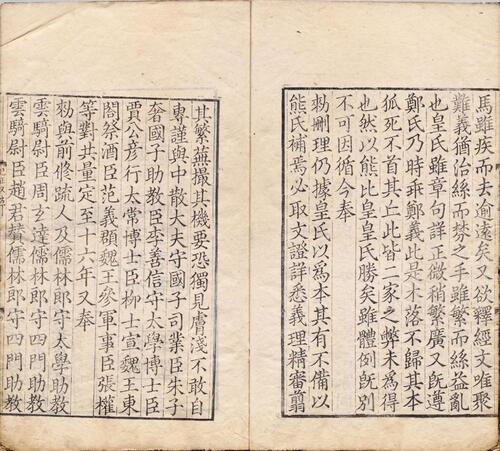 馬雖疾而去逾遠矣又欲釋經文唯聚
難義猶治絲而棼之手雖繁而絲益亂
也皇氏雖章句詳正微稍繁廣又旣遵
鄭氏乃時乖鄭義此是木落不歸其本
狐死不首其丘此皆二家之弊未為得
也然以熊比皇皇氏勝矣雖體例旣別
不可因循今奉
勑刪理仍據皇氏以為本其有不備以
熊氏補焉必取文證詳悉義理精審翦
其繁蕪撮其機要恐獨見膚淺不敢自
專謹與中散大夫守國子司業臣朱子
奢國子助教臣李善信守太學博士臣
賈公彦行太常博士臣柳士宣魏王東
閤祭酒臣范義頵魏王參軍事臣張權
等對共量定至十六年又奉
勑與前修䟽人及儒林郎守太學助教
雲騎尉臣周玄達儒林郎守四門助教
雲騎尉臣趙君贊儒林郎守四門助教